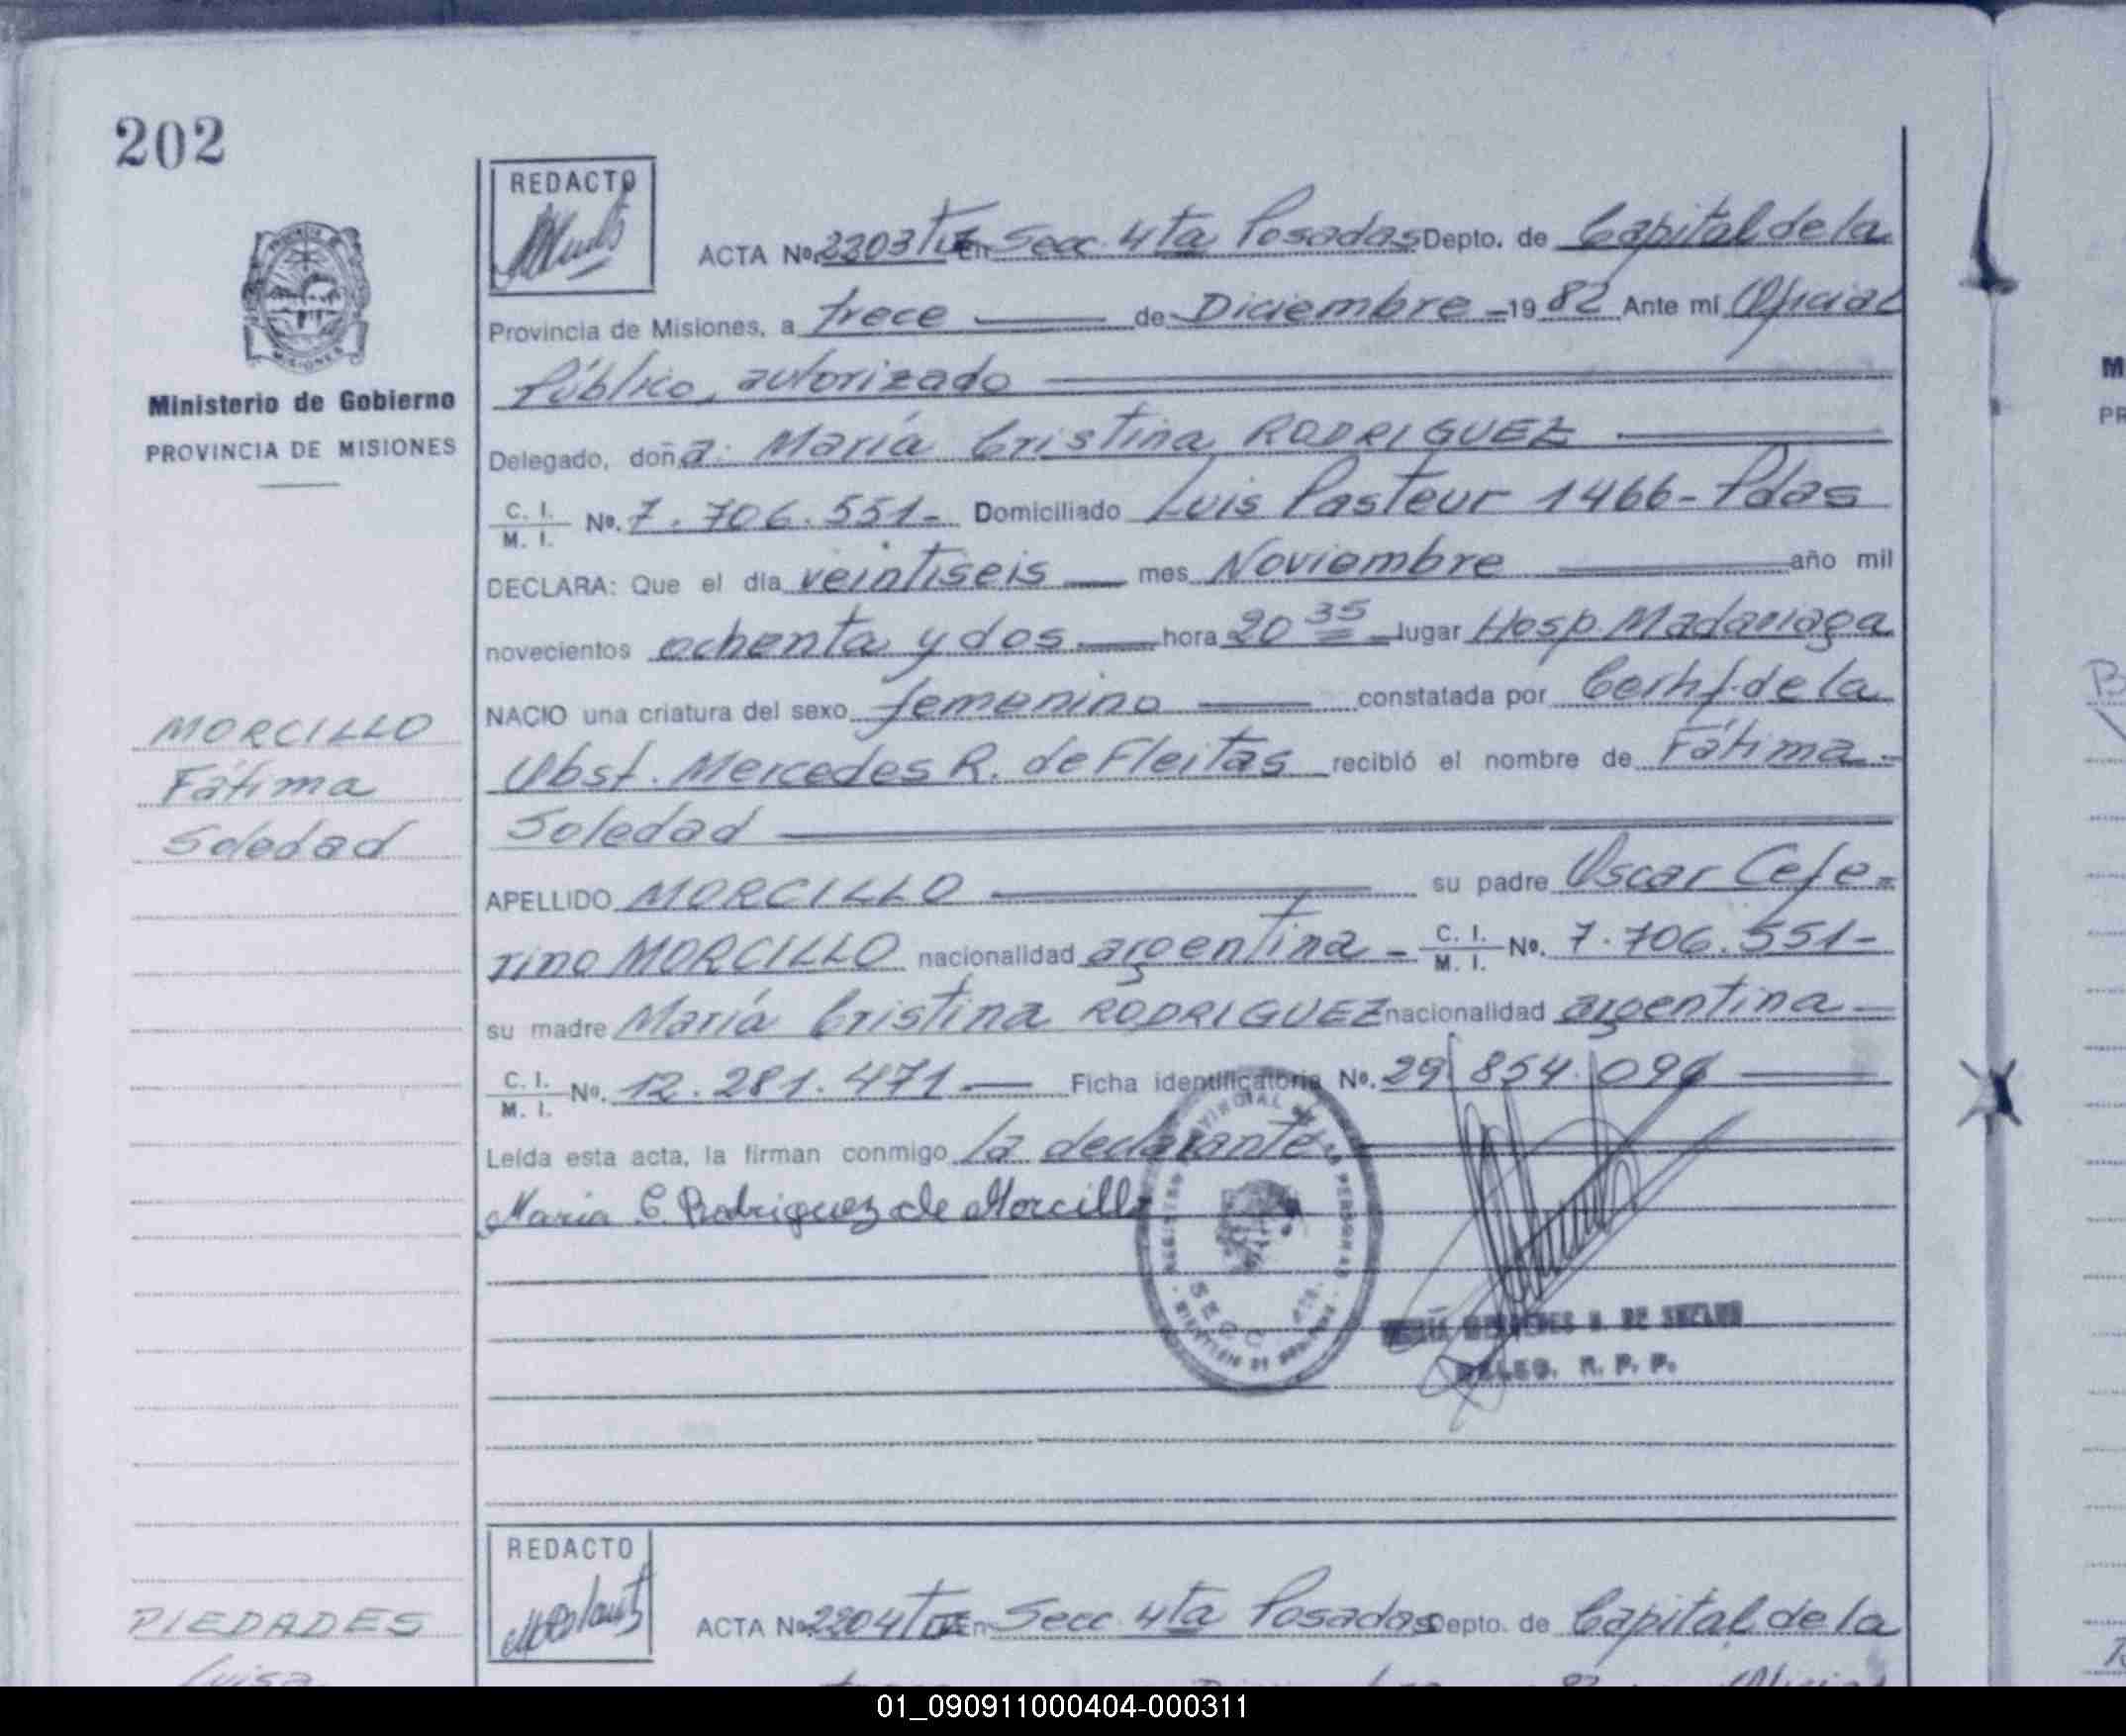 202
REDACTO
ACTA Nº 2203 En Secc. 4ta Posadas Depto. de Capital de la
Provincia de Misiones, a trece de Diciembre 1982 Ante mí Oficial
Público, autorizado
Ministerio de Gobierno
PROVINCIA DE MISIONES
Delegado, doña: María Cristina RODRIGUEZ
C. I.
M. I. Nº. 7.706.551- Domiciliado Luis Pasteur 1466- Pdas
DECLARA: Que el día veintiseis mes Noviembre año mil
novecientos ochenta y dos hora 20 35 lugar Hosp. Madariaga
NACIO una criatura del sexo femenino constatada por Certif. de la
MORCILLO
Fátima
Soledad
Obst. Mercedes R. de Fleitas recibió el nombre de Fátima
Soledad
APELLIDO MORCILLO su padre Oscar Cefe=
rino MORCILLO nacionalidad argentina - C. I. M. I. Nº. 7.706.551-
su madre María Cristina RODRIGUEZ nacionalidad argentina
C. I.
M. I. Nº. 12.281.471 Ficha identificatoria Nº. 29.854.096
Leída esta acta, la firman conmigo la declarante
Maria C. Rodriguez de Morcillo
DELEG. R. P. P.
REDACTO
PIEDADES
Luisa
ACTA Nº 2204 En Secc. 4ta Posadas Depto. de Capital de la
01_090911000404-000311